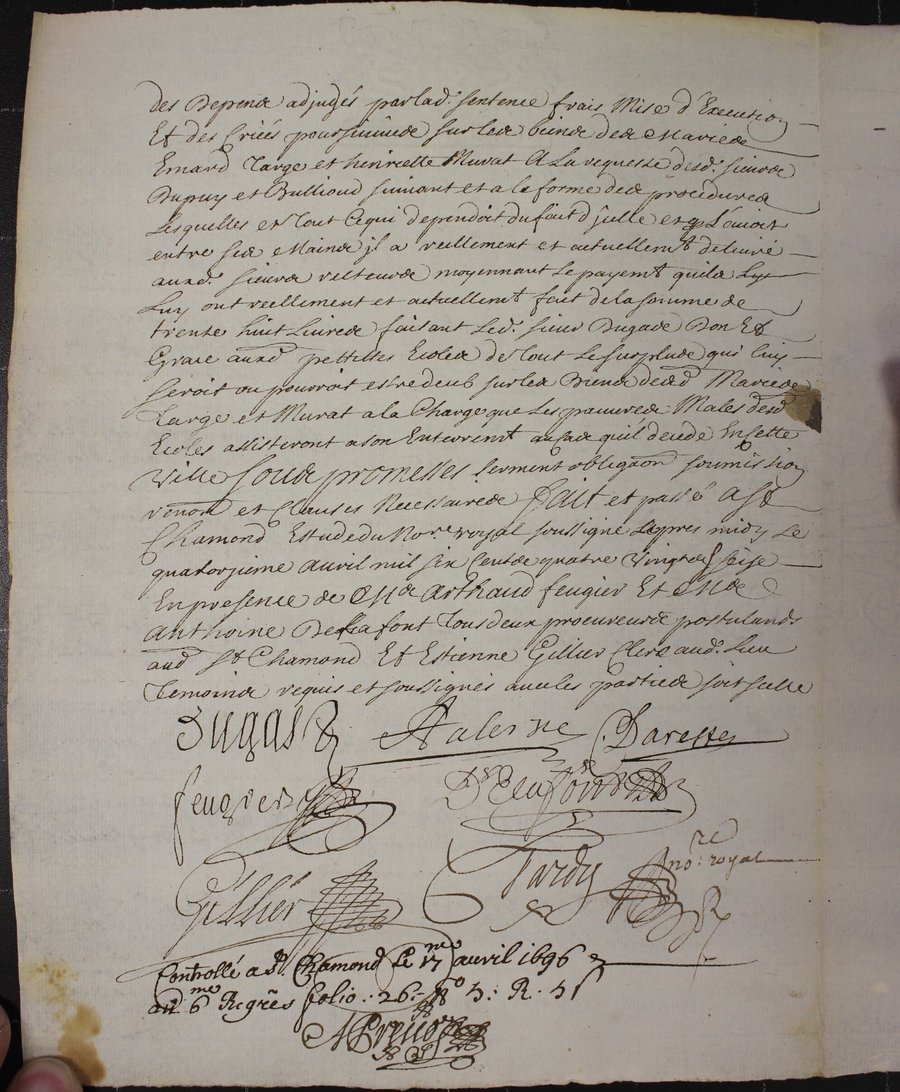 des Depens adjugés par lad. sentence frais Mise d'Execution
Et des Criées poursuivies sur les biens des Mariés
Emard Targe et henriette Murat A la requeste desd. sieurs
Dupuy et Bullioud suivant et a la forme des procedures
Lesquelles et tout Cequi dependoit du fait d'jcelle et
entre ses Mains jl a reellement et actuellemt delivré
auxd. sieurs recteurs moyennant le payemt quils Luy
Luy ont reellement et actuellemt fait de la somme de
trente huit Livres faisant Led. sieur Dugas Don Et
Grace auxd. pettittes Ecoles de tout Le surplus qui luy
seroit ou pourroit estre deub sur les biens desd Mariés
Targe et Murat a la Charge que Les pauvres Males desd
Ecoles assisteront a son Enterremt au cas qu'il decede En cette
Ville Sous promesses serment obligaon soumission
renon et Clauses Necessaires fait et passé a St
Chamond Estude du Nore royal soussigné apres midy Le
quatorzieme avril mil six Cents quatre Vingts seise
En presence de Me Arthaud feugier Et Me
Anthoine Delafont tous deux procureurs postulands
aud St Chamond Et Estienne Gillier Clerc aud. Lieu
temoins requis et soussignés avec les parties soit
Dugas Palerne Daresste
feugier
Gillier Tardy nore royal
Controllé a St Chamond le 17me avril 1696
au 6me Regres folio: 26: